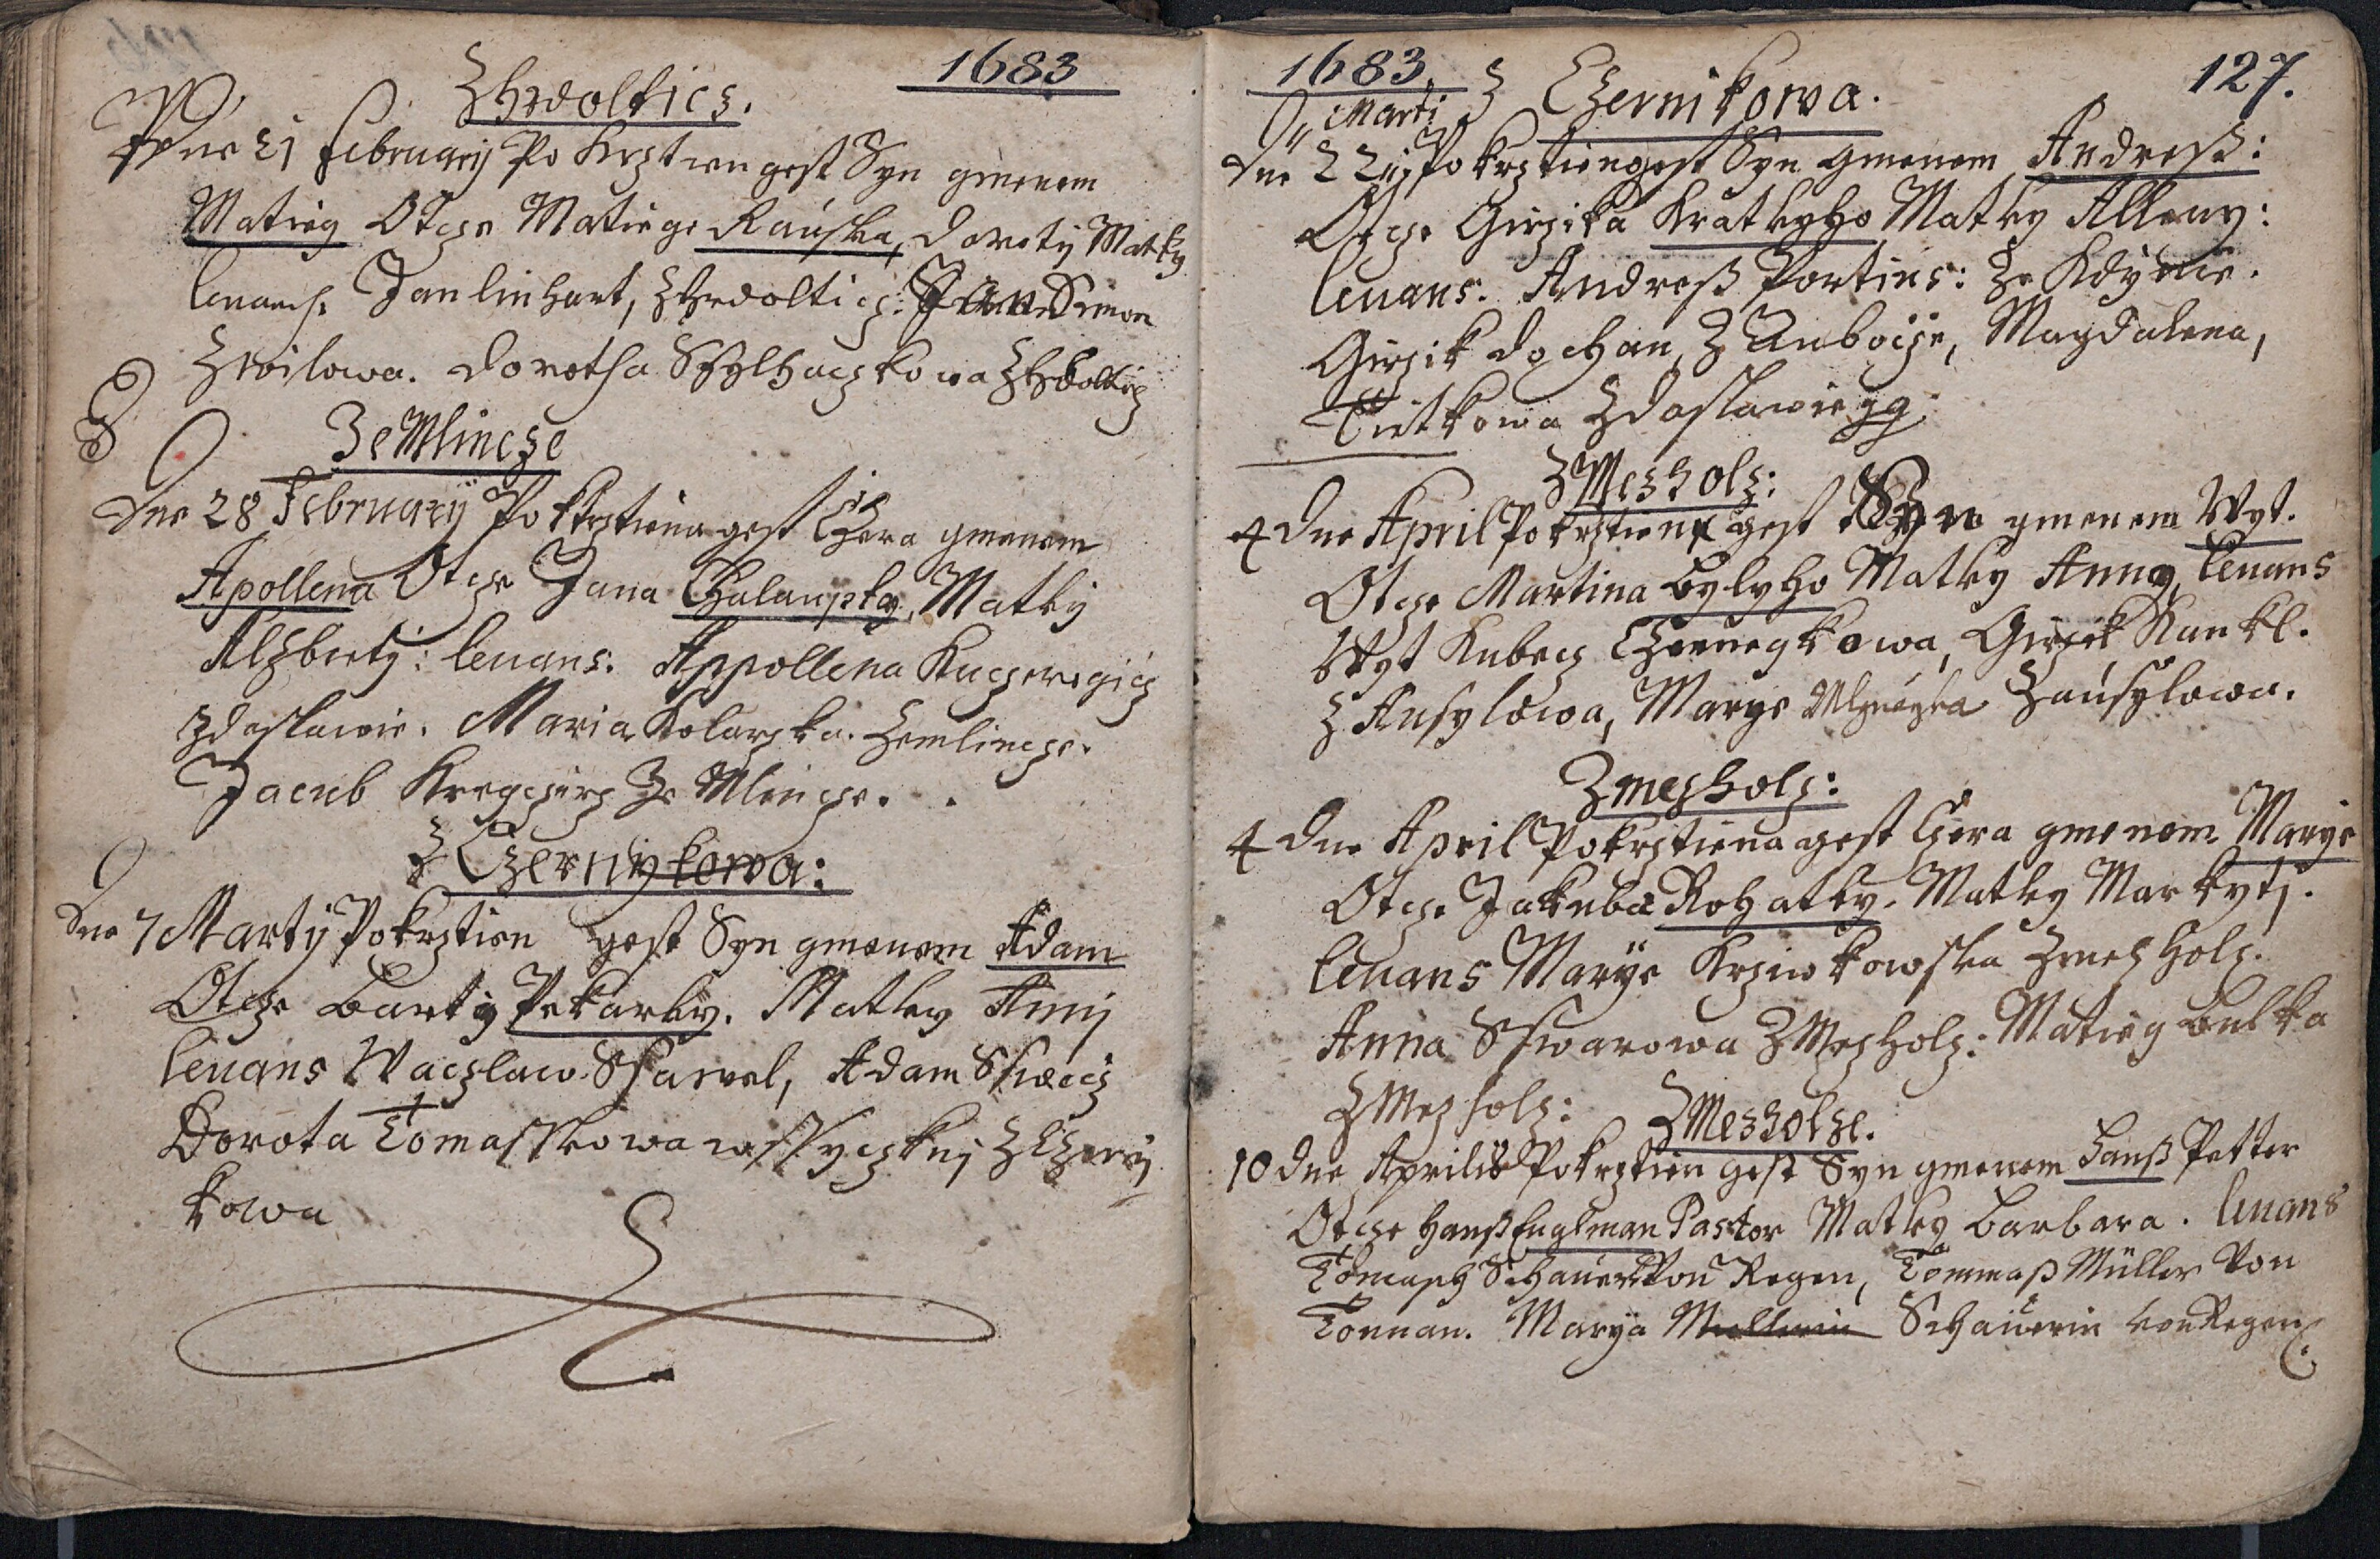 1683
Zhrdoltics.
Dne 21 February Po Krztien gest Syn gmenem
Matieg Otcze Matiege Rauska, Doroty Matky
leuans. Jan linhart, Zhrdolticz: Simon
Zwilowa. Dorotha
Ze Mlincze
Dne 28 February Po Krztiena gest Czera gmenem
Apollena Otcze Jana Chalaupky, Matky
Alzbiety: leuans. Appollena
Zdaslawie. Maria Kolarzka. Zemlincze.
Jacub Kregczirz Ze Mlincze.
Z Czernykowa:
Dne 7 Marty Pokrztien gest Syn gmenem Adam
Otcze Barty Pekarky. Matky Anny
leuans Waczlaw Sfawel, Adam
Dorota Tomasskowa wssyczkny Z Czerny
kowa
1683. Z Czernikowa. 127.
Marti
Dne 22 Pokrztien gest Syn gmenem Andreß:
Otcze Girzika Kratkyho Matky Alleny:
leuans. Andreß Portins: Ze Kdynie.
Girzik Dochan, Z Auboczie, Magdalena,
Tietkowa Zdaslawie
Z Mezholz:
4 Dne April Pokrztien gest Syn gmenem Wyt.
Otcze Martina Bylyho Matky Anny, leuans
Wyt Kubecz Czernegkowa, Girzik Kunkl.
Z Ausylowa, Marye Zausylowa.
Zmezholz:
4 Dne April Pokrztiena gest Czera gmenem Marye
Otcze Jakuba Rohatky. Matky Markyty.
leuans Marye Krziwkowska Zmezholz.
Anna Sswarowa Z Mezholz: Matieg Bulka
Z Mezholz: Z Mezholze.
10 Dne Aprilis Pokrztien gest Syn gmenem Hanß Petter
Otcze Hanß Englman Pastor Matky Barbara. leuans
Tomasch Schauer Von Regen, Tommaß Müller Von
Tonnau. Marya Mullerin Schauerin von Regen